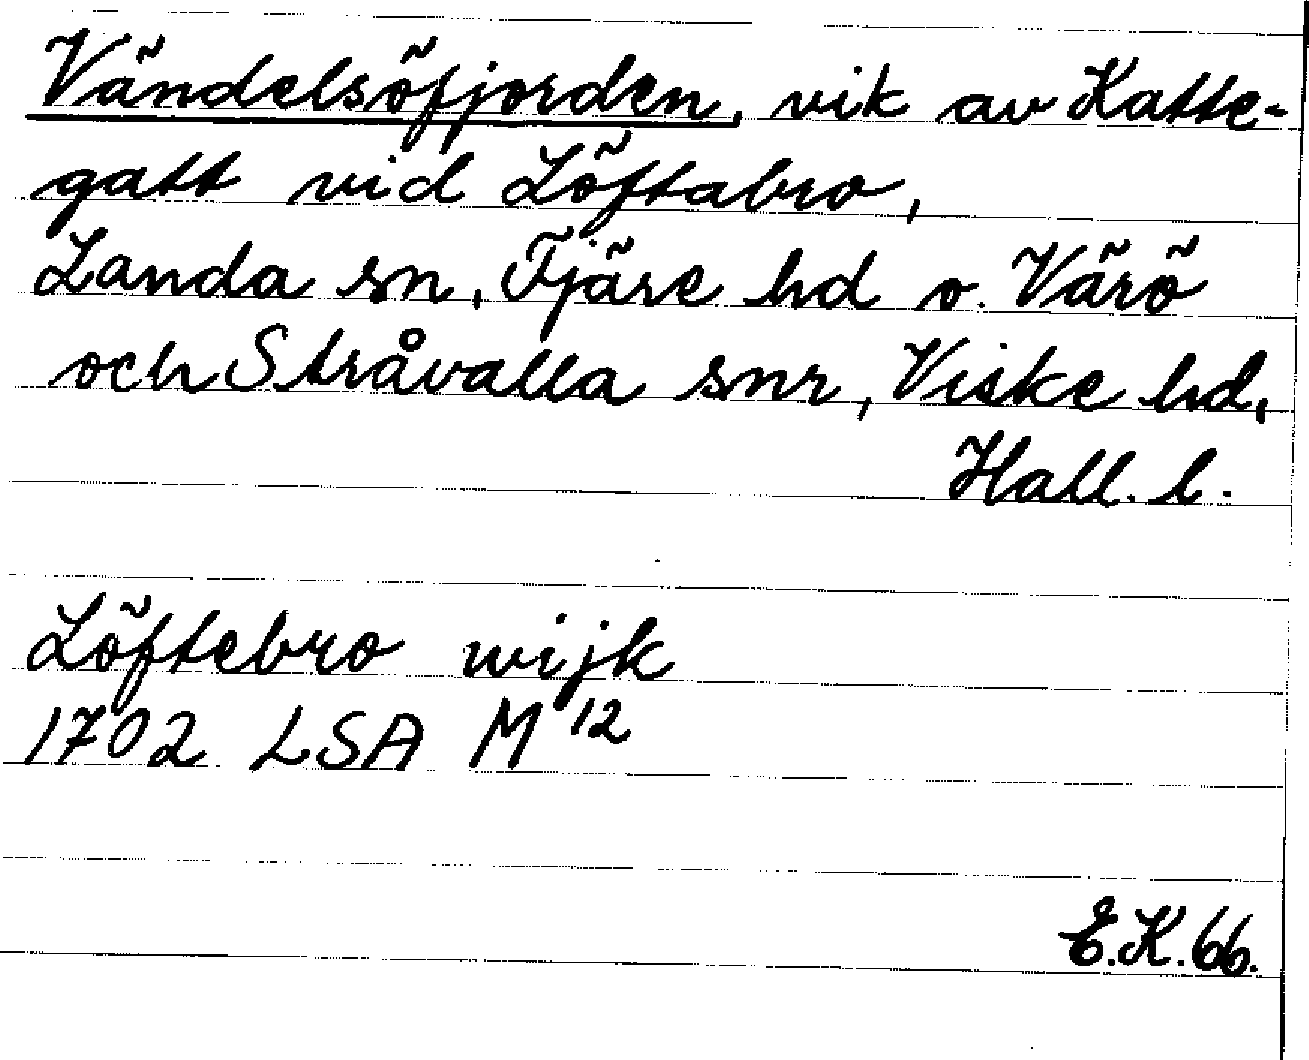 Vändelsöfjorden, vik av Katte-
gatt vid Löftabro,
Landa sn, Fjäre hd o. Värö
och Stråvalla snr, Viske hd,
Hall. l.
Löftebro wijk
1702 LSA M 12
E.K.66.